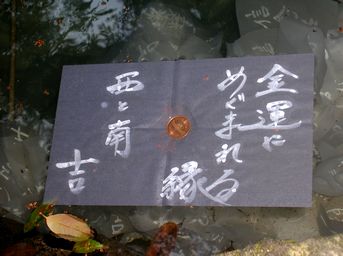 金運に
めぐまれる
縁
西と南
吉